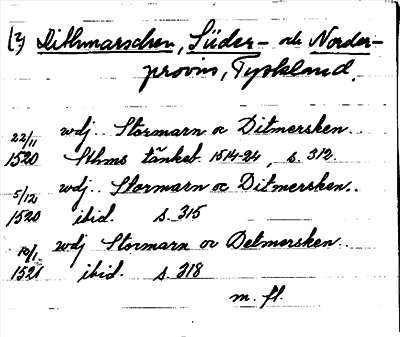 (2) Dithmarschen, Süder- och Norder-
provins, Tyskland.
22/11 wdj Stormarn oc Ditmersken
1520 Sthms tänkeb. 1514-24, s. 312.
5/12 wdj Stormarn oc Ditmersken
1520 ibid. s. 315
10/1 wdj Stormarn oc Detmersken
1521 ibid. s. 318
m. fl.